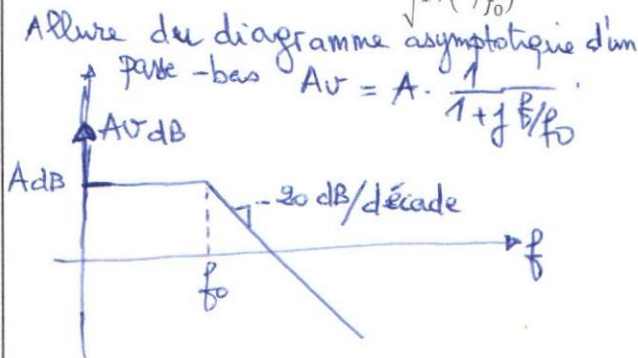 √ ( /f₀)
Allure du diagramme asymptotique d'un
passe-bas Av = A. 1/(1+j f/f₀).
Av dB
A dB
-20 dB/décade
f
f₀